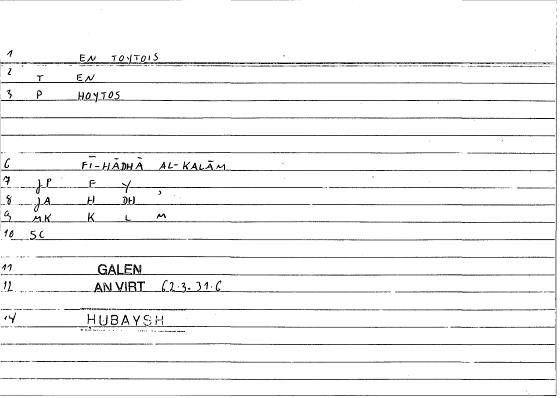 1 EN TOYTOIS
2 T EN
3 P HOYTOS
6 FĪ-HĀDHĀ AL-KALĀM
7 JP F Y
8 JA H DH ʾ
9 MK K L M
10 SC
11 GALEN
12 AN VIRT 62.3.31.6
14 HUBAYSH